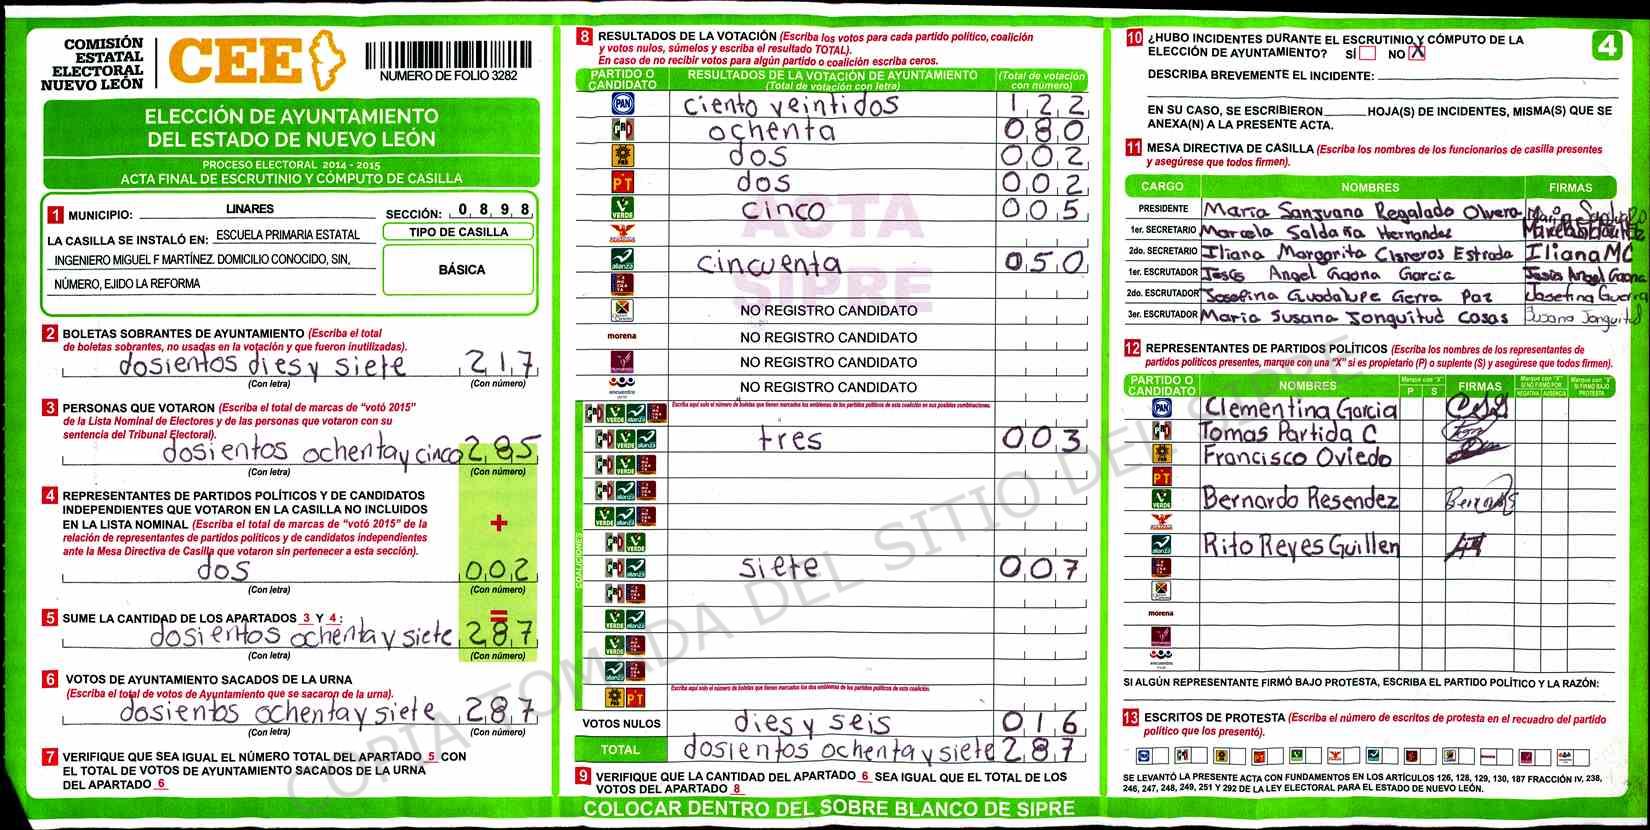 COMISIÓN
ESTATAL
ELECTORAL
NUEVO LEÓN
CEE
NUMERO DE FOLIO 3282
ELECCIÓN DE AYUNTAMIENTO
DEL ESTADO DE NUEVO LEÓN
PROCESO ELECTORAL 2014 - 2015
ACTA FINAL DE ESCRUTINIO Y CÓMPUTO DE CASILLA
1 MUNICIPIO: LINARES SECCIÓN: 0 8 9 8
LA CASILLA SE INSTALÓ EN: ESCUELA PRIMARIA ESTATAL
INGENIERO MIGUEL F MARTÍNEZ. DOMICILIO CONOCIDO, SIN,
NÚMERO, EJIDO LA REFORMA
TIPO DE CASILLA
BÁSICA
2 BOLETAS SOBRANTES DE AYUNTAMIENTO (Escriba el total
de boletas sobrantes, no usadas en la votación y que fueron inutilizadas).
dosientos dies y siete 217
(Con letra) (Con número)
3 PERSONAS QUE VOTARON (Escriba el total de marcas de "votó 2015"
de la Lista Nominal de Electores y de las personas que votaron con su
sentencia del Tribunal Electoral).
dosientos ochenta y cinco 285
(Con letra) (Con número)
4 REPRESENTANTES DE PARTIDOS POLÍTICOS Y DE CANDIDATOS
INDEPENDIENTES QUE VOTARON EN LA CASILLA NO INCLUIDOS
EN LA LISTA NOMINAL (Escriba el total de marcas de "votó 2015" de la
relación de representantes de partidos políticos y de candidatos independientes
ante la Mesa Directiva de Casilla que votaron sin pertenecer a esta sección).
+
dos 002
(Con letra) (Con número)
=
5 SUME LA CANTIDAD DE LOS APARTADOS 3 Y 4:
dosientos ochenta y siete 287
(Con letra) (Con número)
6 VOTOS DE AYUNTAMIENTO SACADOS DE LA URNA
(Escriba el total de votos de Ayuntamiento que se sacaron de la urna).
dosientos ochenta y siete 287
(Con letra) (Con número)
7 VERIFIQUE QUE SEA IGUAL EL NÚMERO TOTAL DEL APARTADO 5 CON
EL TOTAL DE VOTOS DE AYUNTAMIENTO SACADOS DE LA URNA
DEL APARTADO 6
8 RESULTADOS DE LA VOTACIÓN (Escriba los votos para cada partido político, coalición
y votos nulos, súmelos y escriba el resultado TOTAL).
En caso de no recibir votos para algún partido o coalición escriba ceros.
PARTIDO O CANDIDATO RESULTADOS DE LA VOTACIÓN DE AYUNTAMIENTO (Total de votación con letra) (Total de votación con número)
PAN ciento veintidos 122
PRI ochenta 080
PRD dos 002
PT dos 002
VERDE cinco 005
alianza cincuenta 050
NO REGISTRO CANDIDATO
morena NO REGISTRO CANDIDATO
NO REGISTRO CANDIDATO
encuentro NO REGISTRO CANDIDATO
COALICIONES
Escriba aquí solo el número de boletas que tienen marcados los emblemas de los partidos políticos de esta coalición en sus posibles combinaciones.
tres 003
siete 007
Escriba aquí solo el número de boletas que tienen marcados los dos emblemas de los partidos políticos de esta coalición.
VOTOS NULOS dies y seis 016
TOTAL dosientos ochenta y siete 287
9 VERIFIQUE QUE LA CANTIDAD DEL APARTADO 6 SEA IGUAL QUE EL TOTAL DE LOS
VOTOS DEL APARTADO 8
COLOCAR DENTRO DEL SOBRE BLANCO DE SIPRE
ACTA
SIPRE
COPIA TOMADA DEL SITIO DEL SIPRE
4
10 ¿HUBO INCIDENTES DURANTE EL ESCRUTINIO Y CÓMPUTO DE LA
ELECCIÓN DE AYUNTAMIENTO? SÍ NO X
DESCRIBA BREVEMENTE EL INCIDENTE:
EN SU CASO, SE ESCRIBIERON HOJA(S) DE INCIDENTES, MISMA(S) QUE SE
ANEXA(N) A LA PRESENTE ACTA.
11 MESA DIRECTIVA DE CASILLA (Escriba los nombres de los funcionarios de casilla presentes
y asegúrese que todos firmen).
CARGO NOMBRES FIRMAS
PRESIDENTE Maria Sanjuana Regalado Olvera
1er. SECRETARIO Marcela Saldaña Hernandez
2do. SECRETARIO Iliana Margarita Cisneros Estrada IlianaMC
1er. ESCRUTADOR Jesús Angel Gaona Garcia Jesús Angel Gaona
2do. ESCRUTADOR Josefina Guadalupe Gerra Paz Josefina Guerra
3er. ESCRUTADOR Maria Susana Jonguitud Casas Susana Jonguitud
12 REPRESENTANTES DE PARTIDOS POLÍTICOS (Escriba los nombres de los representantes de
partidos políticos presentes, marque con una "X" si es propietario (P) o suplente (S) y asegúrese que todos firmen).
PARTIDO O CANDIDATO NOMBRES Marque con "X" P S FIRMAS Marque con "X" SI NO FIRMÓ POR NEGATIVA AUSENCIA Marque con "X" SI FIRMÓ BAJO PROTESTA
PAN Clementina Garcia
PRI Tomas Partida C
PRD Francisco Oviedo
PT
VERDE Bernardo Resendez
alianza Rito Reyes Guillen
morena
encuentro
SI ALGÚN REPRESENTANTE FIRMÓ BAJO PROTESTA, ESCRIBA EL PARTIDO POLÍTICO Y LA RAZÓN:
13 ESCRITOS DE PROTESTA (Escriba el número de escritos de protesta en el recuadro del partido
político que los presentó).
SE LEVANTÓ LA PRESENTE ACTA CON FUNDAMENTOS EN LOS ARTÍCULOS 126, 128, 129, 130, 187 FRACCIÓN IV, 238,
246, 247, 248, 249, 251 Y 292 DE LA LEY ELECTORAL PARA EL ESTADO DE NUEVO LEÓN.